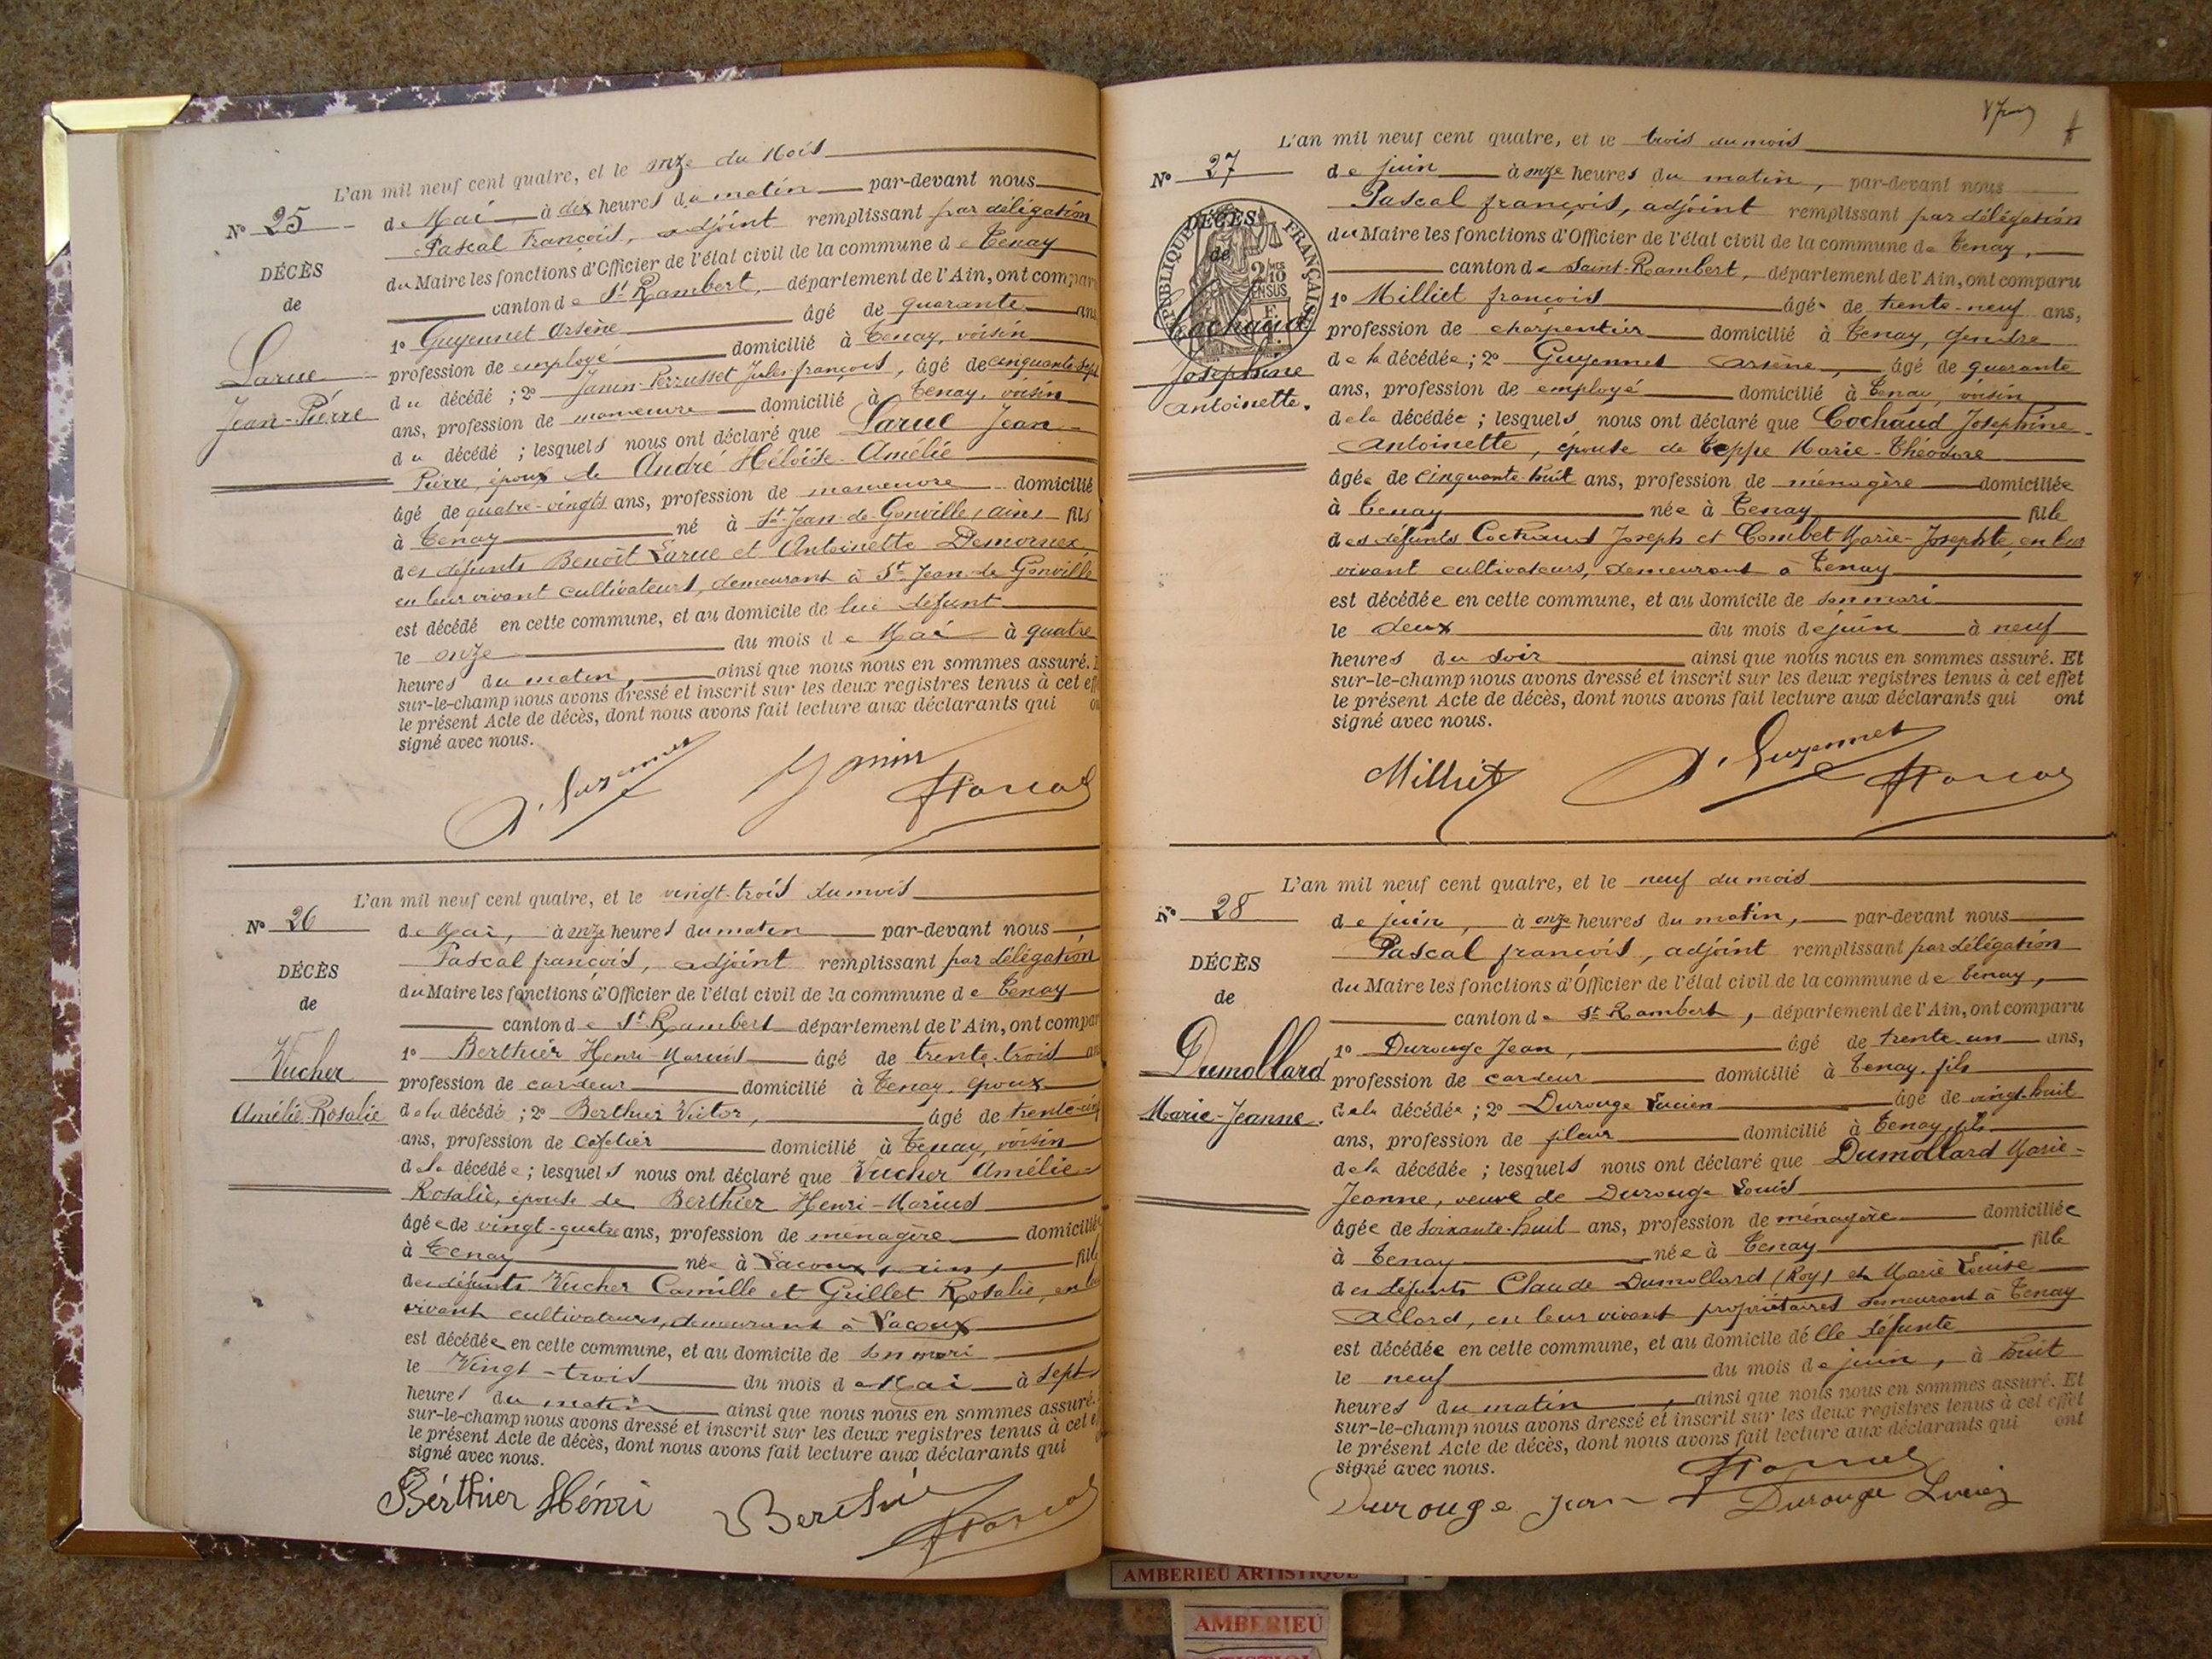 L'an mil neuf cent quatre, et le onze du Mois
Nº 25
de Mai à dix heures du matin par-devant nous
Pascal François, adjoint remplissant par délégation
DÉCÈS
du Maire les fonctions d'Officier de l'état civil de la commune de Tenay
de
canton de St Rambert, département de l'Ain, ont compar
1º Guyennet Arsène âgé de quarante ans
Larue
profession de employé domicilié à Tenay, voisin
du décédé ; 2º Janin-Perrusset Jules-françois, âgé de cinquante sept
Jean-Pierre
ans, profession de manœuvre domicilié à Tenay, voisin
du décédé ; lesquels nous ont déclaré que Larue Jean-
Pierre, époux de André Héloïse-Amélie
âgé de quatre-vingts ans, profession de manœuvre domicilié
à Tenay né à St-Jean-de-Gonville (ain) fils
des défunts Benoît Larue et Antoinette Demornex,
en leur vivant cultivateurs, demeurant à St Jean de Gonville
est décédé en cette commune, et au domicile de lui défunt
le onze du mois de Mai à quatre
heures du matin, ainsi que nous nous en sommes assuré.
sur-le-champ nous avons dressé et inscrit sur les deux registres tenus à cet eff
le présent Acte de décès, dont nous avons fait lecture aux déclarants qui
signé avec nous.
A. Guyennet Janin Pascal
L'an mil neuf cent quatre, et le vingt-trois du mois
Nº 26
de Mai, à onze heures du matin par-devant nous
Pascal françois, adjoint remplissant par délégation
DÉCÈS
du Maire les fonctions d'Officier de l'état civil de la commune de Tenay
de
canton de St Rambert département de l'Ain, ont compar
1º Berthier Henri-Marius âgé de trente-trois an
Vucher
profession de cardeur domicilié à Tenay, époux
Amélie Rosalie
de la décédé ; 2º Berthier Victor, âgé de trente-cinq
ans, profession de cafetier domicilié à Tenay, voisin
de la décédée ; lesquels nous ont déclaré que Vucher Amélie-
Rosalie, épouse de Berthier Henri-Marius
âgée de vingt-quatre ans, profession de ménagère domiciliée
à Tenay née à Lacoux, ain, fille
des défunts Vucher Camille et Guillet Rosalie, en leur
vivant cultivateurs, demeurant à Lacoux
est décédée en cette commune, et au domicile de son mari
le Vingt-trois du mois de Mai à sept
heures du matin ainsi que nous nous en sommes assuré.
sur-le-champ nous avons dressé et inscrit sur les deux registres tenus à cet e
le présent Acte de décès, dont nous avons fait lecture aux déclarants qui
signé avec nous.
Bérthier Hénri Berthier Pascal
L'an mil neuf cent quatre, et le trois du mois
Nº 27
de juin à onze heures du matin, par-devant nous
Pascal françois, adjoint remplissant par délégation
DÉCÈS
du Maire les fonctions d'Officier de l'état civil de la commune de Tenay,
de
RÉPUBLIQUE FRANÇAISE
2/10 EN SUS
canton de Saint-Rambert, département de l'Ain, ont comparu
1º Milliet françois âgé de trente-neuf ans,
Cochaud
profession de charpentier domicilié à Tenay, gendre
Joséphine
de la décédée ; 2º Guyennet Arsène, âgé de quarante
Antoinette.
ans, profession de employé domicilié à Tenay, voisin
de la décédée ; lesquels nous ont déclaré que Cochaud Joséphine-
Antoinette, épouse de Teppe Marie-Théodore
âgée de cinquante-huit ans, profession de ménagère domiciliée
à Tenay née à Tenay fille
des défunts Cochaud Joseph et Combet Marie-Josephte, en leur
vivant cultivateurs, demeurant à Tenay
est décédée en cette commune, et au domicile de son mari
le deux du mois de juin à neuf
heures du soir ainsi que nous nous en sommes assuré. Et
sur-le-champ nous avons dressé et inscrit sur les deux registres tenus à cet effet
le présent Acte de décès, dont nous avons fait lecture aux déclarants qui ont
signé avec nous.
Milliet A. Guyennet Pascal
L'an mil neuf cent quatre, et le neuf du mois
Nº 28
de juin, à onze heures du matin, par-devant nous
Pascal françois, adjoint remplissant par délégation
DÉCÈS
du Maire les fonctions d'Officier de l'état civil de la commune de Tenay,
de
canton de St Rambert, département de l'Ain, ont comparu
1º Durouge Jean, âgé de trente un ans,
Dumollard
profession de cardeur domicilié à Tenay, fils
Marie-Jeanne.
de la décédée ; 2º Durouge Lucien âgé de vingt-huit
ans, profession de fileur domicilié à Tenay, fils
de la décédée ; lesquels nous ont déclaré que Dumollard Marie-
Jeanne, veuve de Durouge Louis
âgée de soixante-huit ans, profession de ménagère domiciliée
à Tenay née à Tenay fille
des défunts Claude Dumollard (Roy) et Marie Louise
Allard, en leur vivant propriétaires demeurant à Tenay
est décédée en cette commune, et au domicile d'elle défunte
le neuf du mois de juin, à huit
heures du matin, ainsi que nous nous en sommes assuré. Et
sur-le-champ nous avons dressé et inscrit sur les deux registres tenus à cet effet
le présent Acte de décès, dont nous avons fait lecture aux déclarants qui ont
signé avec nous.
Pascal
Durouge Jean Durouge Lucien
AMBERIEU ARTISTIQUE
AMBERIEU